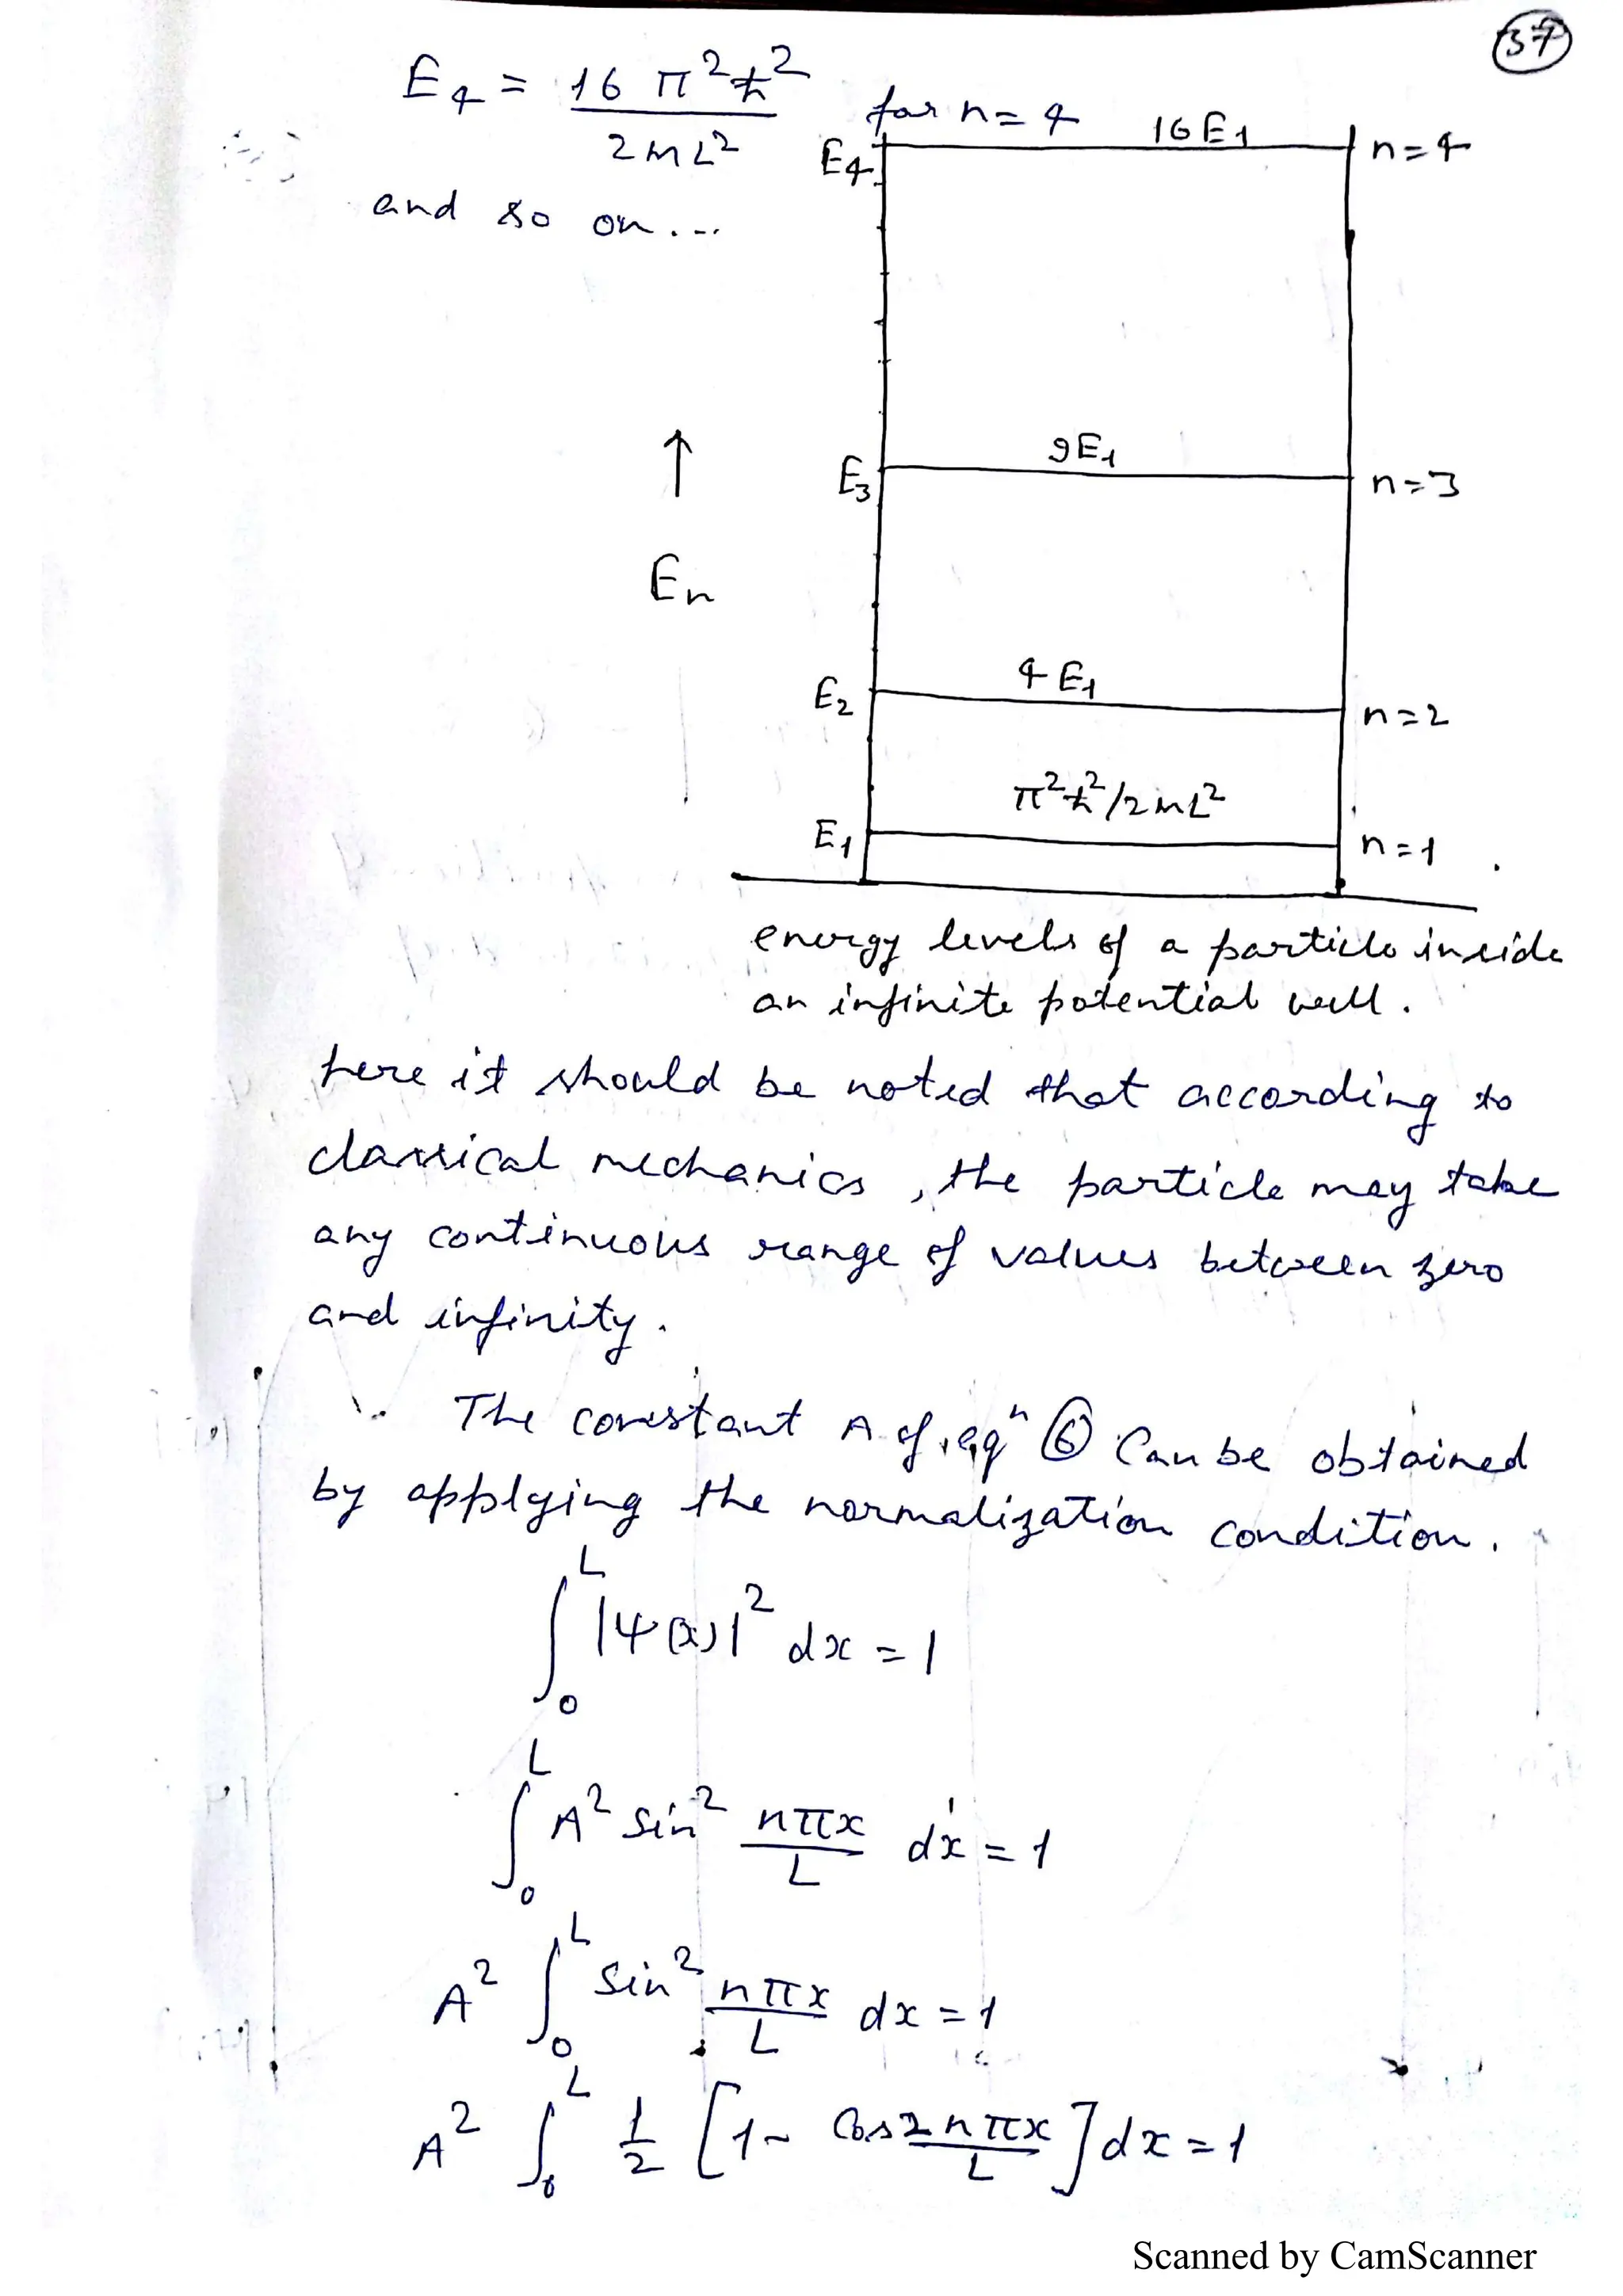 37
E4 = 16 π²ħ² / 2mL² for n=4
and so on...
E4 16E1 n=4
↑
E3 9E1 n=3
En
E2 4E1 n=2
π²ħ²/2mL²
E1 n=1
energy levels of a particle inside
an infinite potential well.
here it should be noted that according to
classical mechanics, the particle may take
any continuous range of values between zero
and infinity.
The constant A of eqⁿ ⑥ Can be obtained
by applying the normalization condition.
∫₀ᴸ |ψ(x)|² dx = 1
∫₀ᴸ A² sin² nπx/L dx = 1
A² ∫₀ᴸ sin² nπx/L dx = 1
A² ∫₀ᴸ 1/2 [1 - Cos 2nπx/L] dx = 1
Scanned by CamScanner